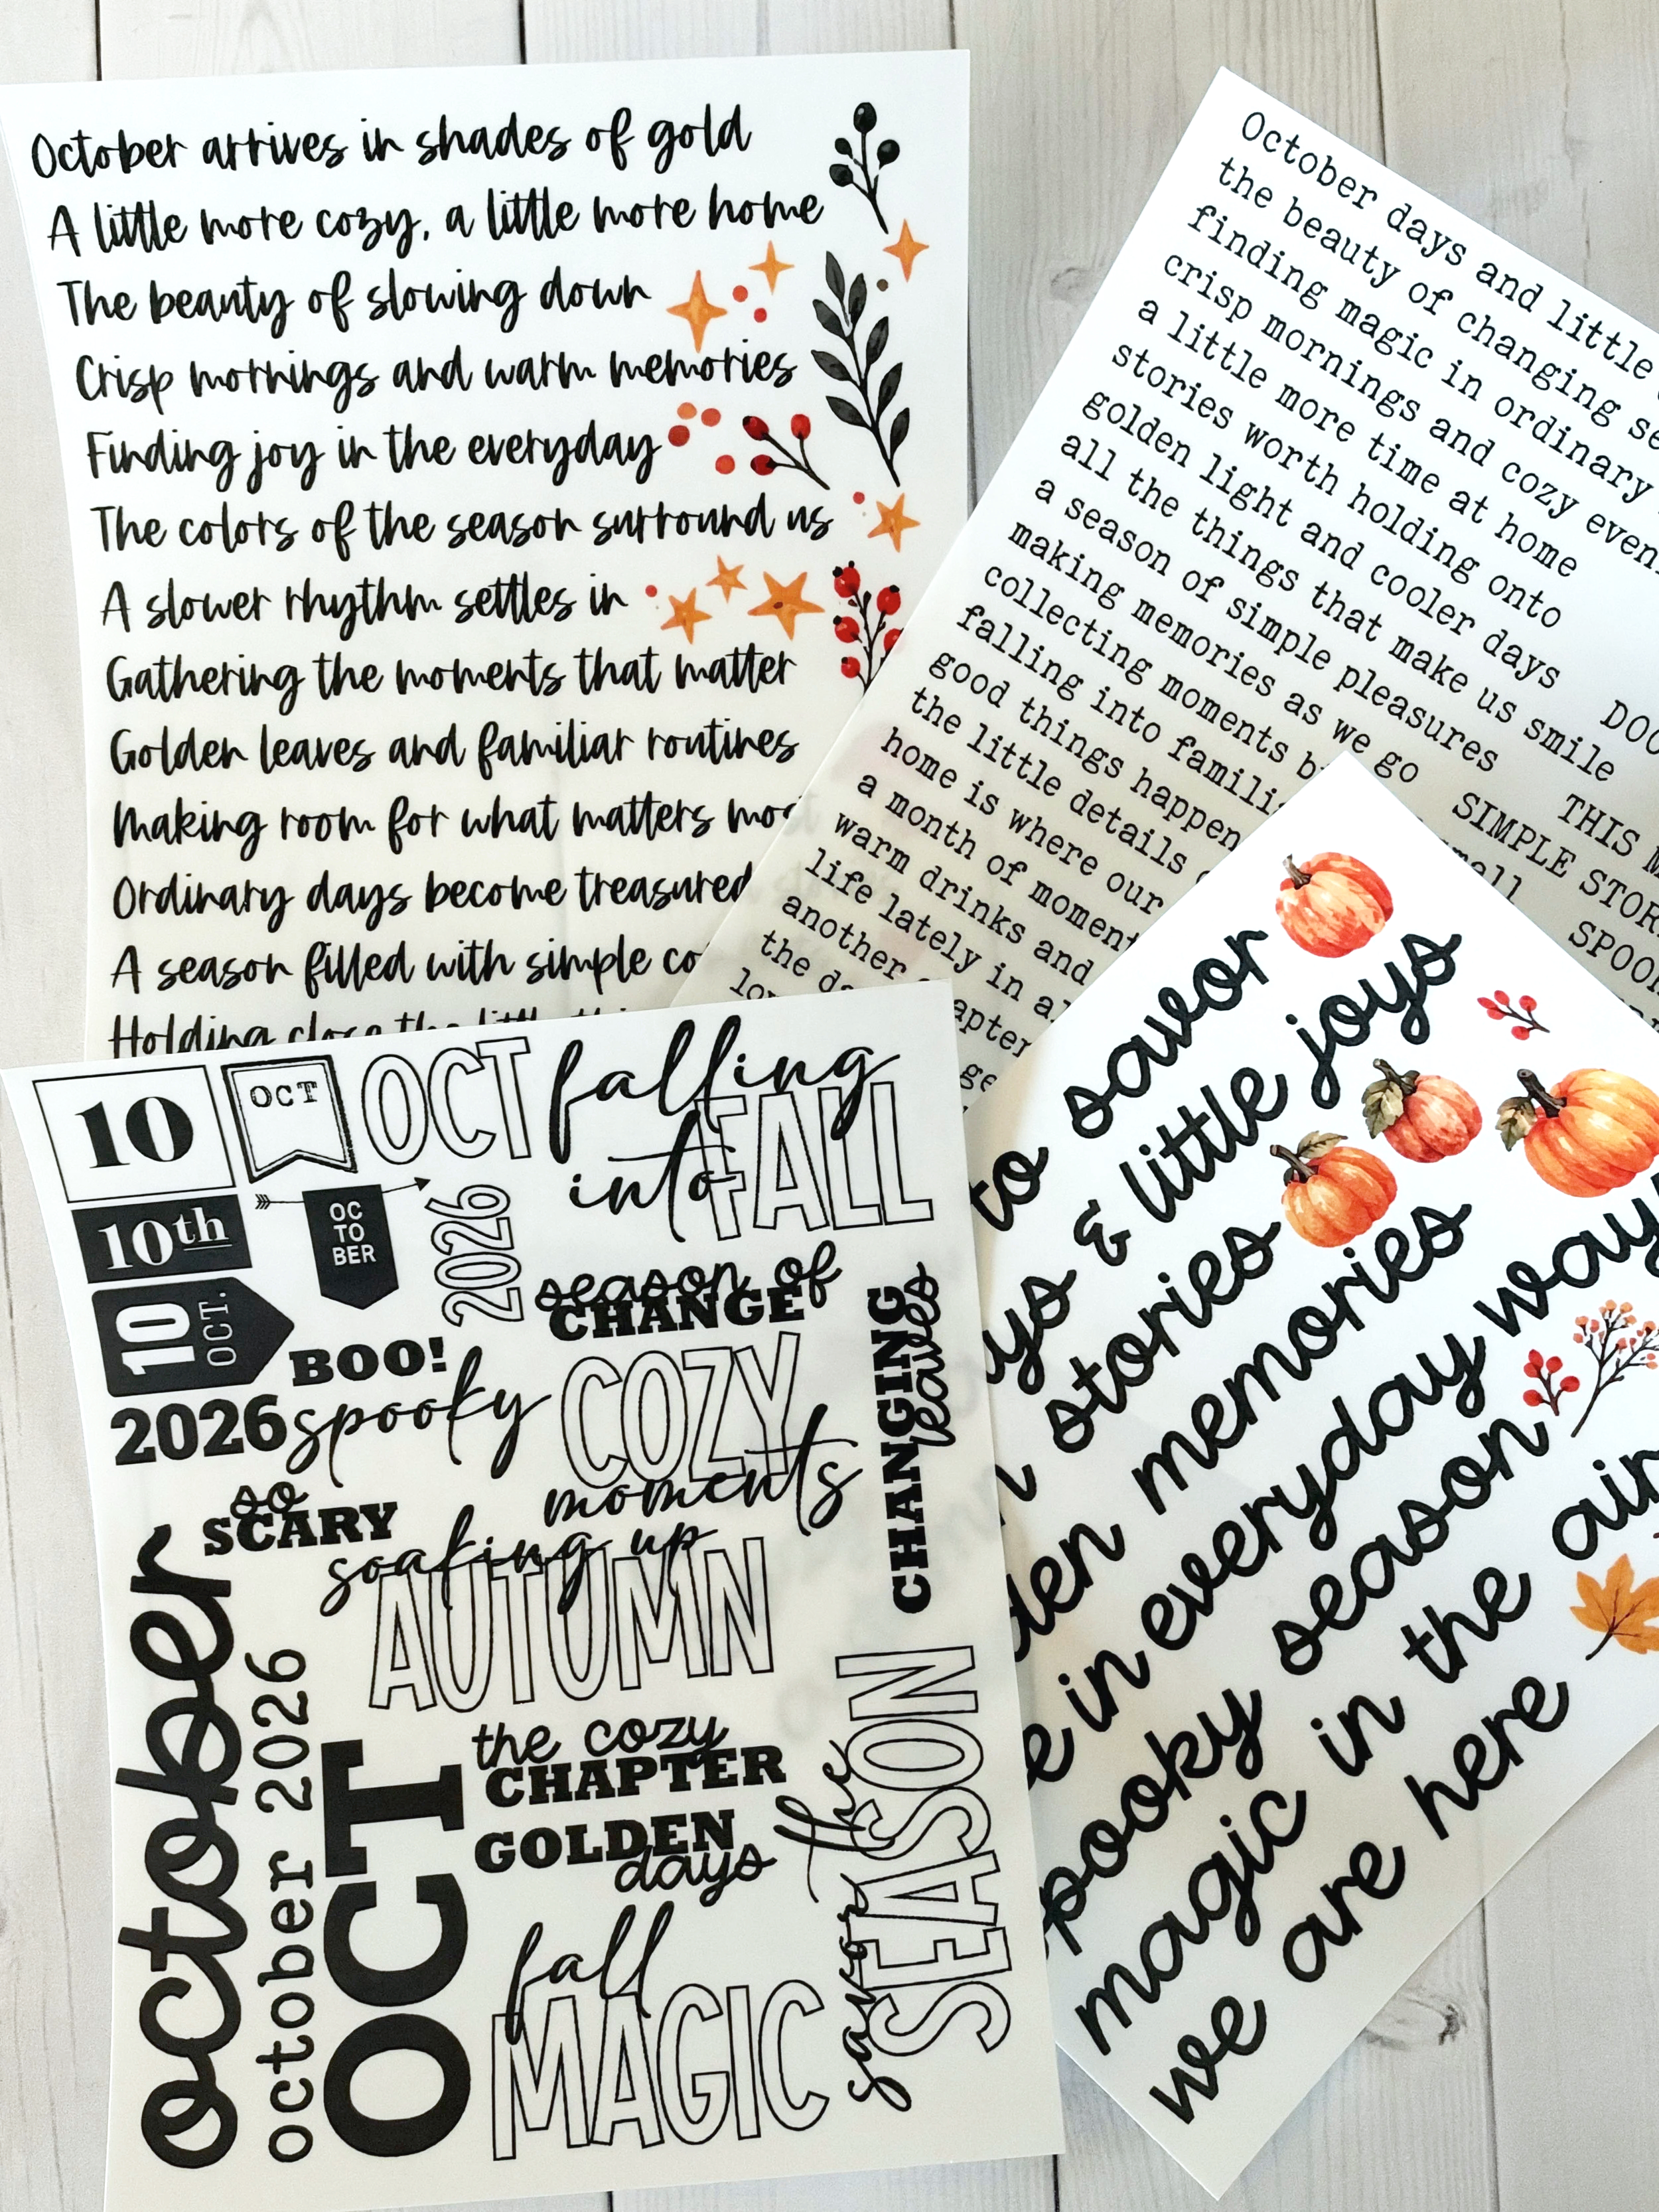 October arrives in shades of gold
A little more cozy, a little more home
The beauty of slowing down
Crisp mornings and warm memories
Finding joy in the everyday
The colors of the season surround us
A slower rhythm settles in
Gathering the moments that matter
Golden leaves and familiar routines
Making room for what matters
Ordinary days become treasured
A season filled with simple
Holding close the little
October days and little
the beauty of changing
finding magic in ordinary
crisp mornings and cozy
a little more time at home
stories worth holding onto
golden light and cooler days
all the things that make us smile
a season of simple pleasures
making memories as we go
collecting moments
falling into
good things happen
the little details
home is where our
a month of
warm drinks and
life lately in
another chapter
the
DOO
THIS
SIMPLE
SPOO
to savor
& little joys
stories
memories
in everyday
season
spooky
magic in the air
we are here
10
OCT
OCT
falling
into
FALL
10th
OC
TO
BER
2026
season of
CHANGE
10
OCT.
BOO!
CHANGING
leaves
2026
spooky
COZY
moments
so
SCARY
soaking up
AUTUMN
october
october 2026
OCT
the cozy
CHAPTER
GOLDEN
days
savor the
SEASON
fall
MAGIC